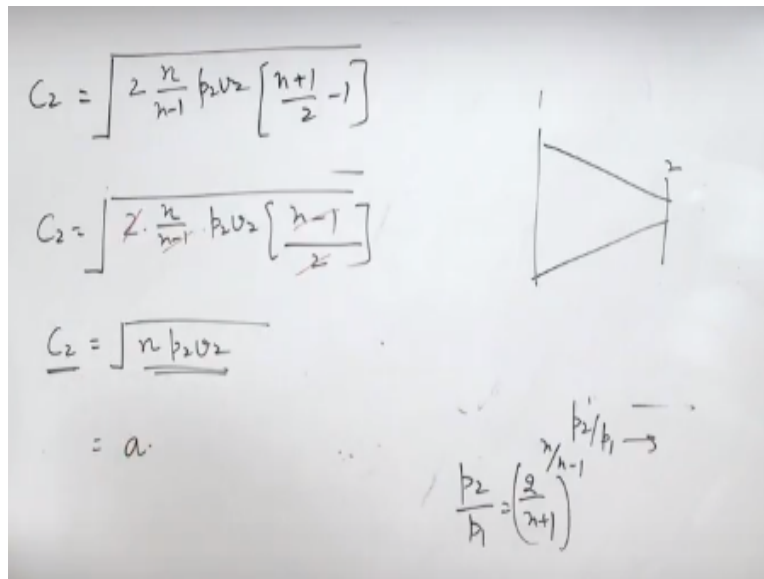 C₂ = √(2 n/(n-1) p₂v₂ [(n+1)/2 - 1])
C₂ = √(2 · n/(n-1) · p₂v₂ [(n-1)/2])
C₂ = √(n p₂v₂)
= a.
1
2
p₂/p₁ →
p₂/p₁ = (2/(n+1))^(n/(n-1))